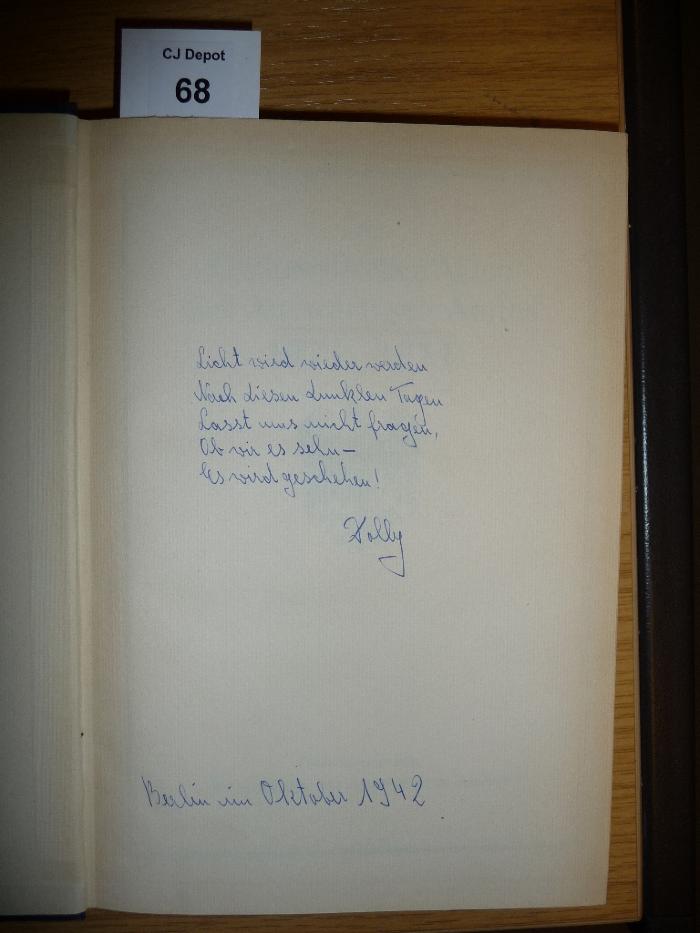 CJ Depot
68
Licht wird wieder werden
Nach diesen dunklen Tagen
Lasst uns nicht fragen,
Ob wir es sehn—
Es wird geschehen!
Berlin im Oktober 1942